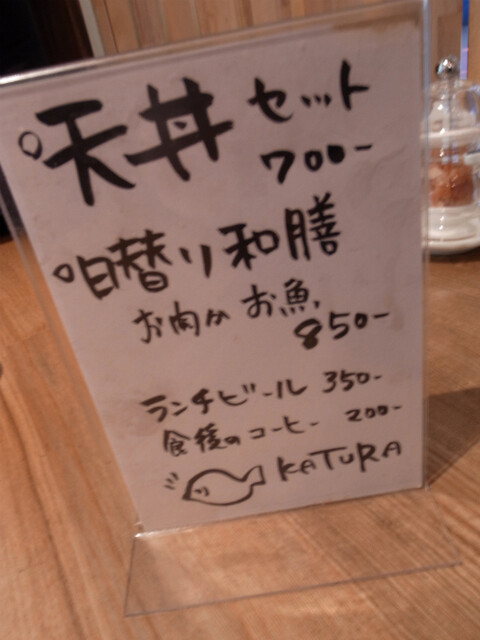 天丼セット
700-
日替り和膳
お肉かお魚、
850-
ランチビール 350-
食後のコーヒー 200-
KATURA